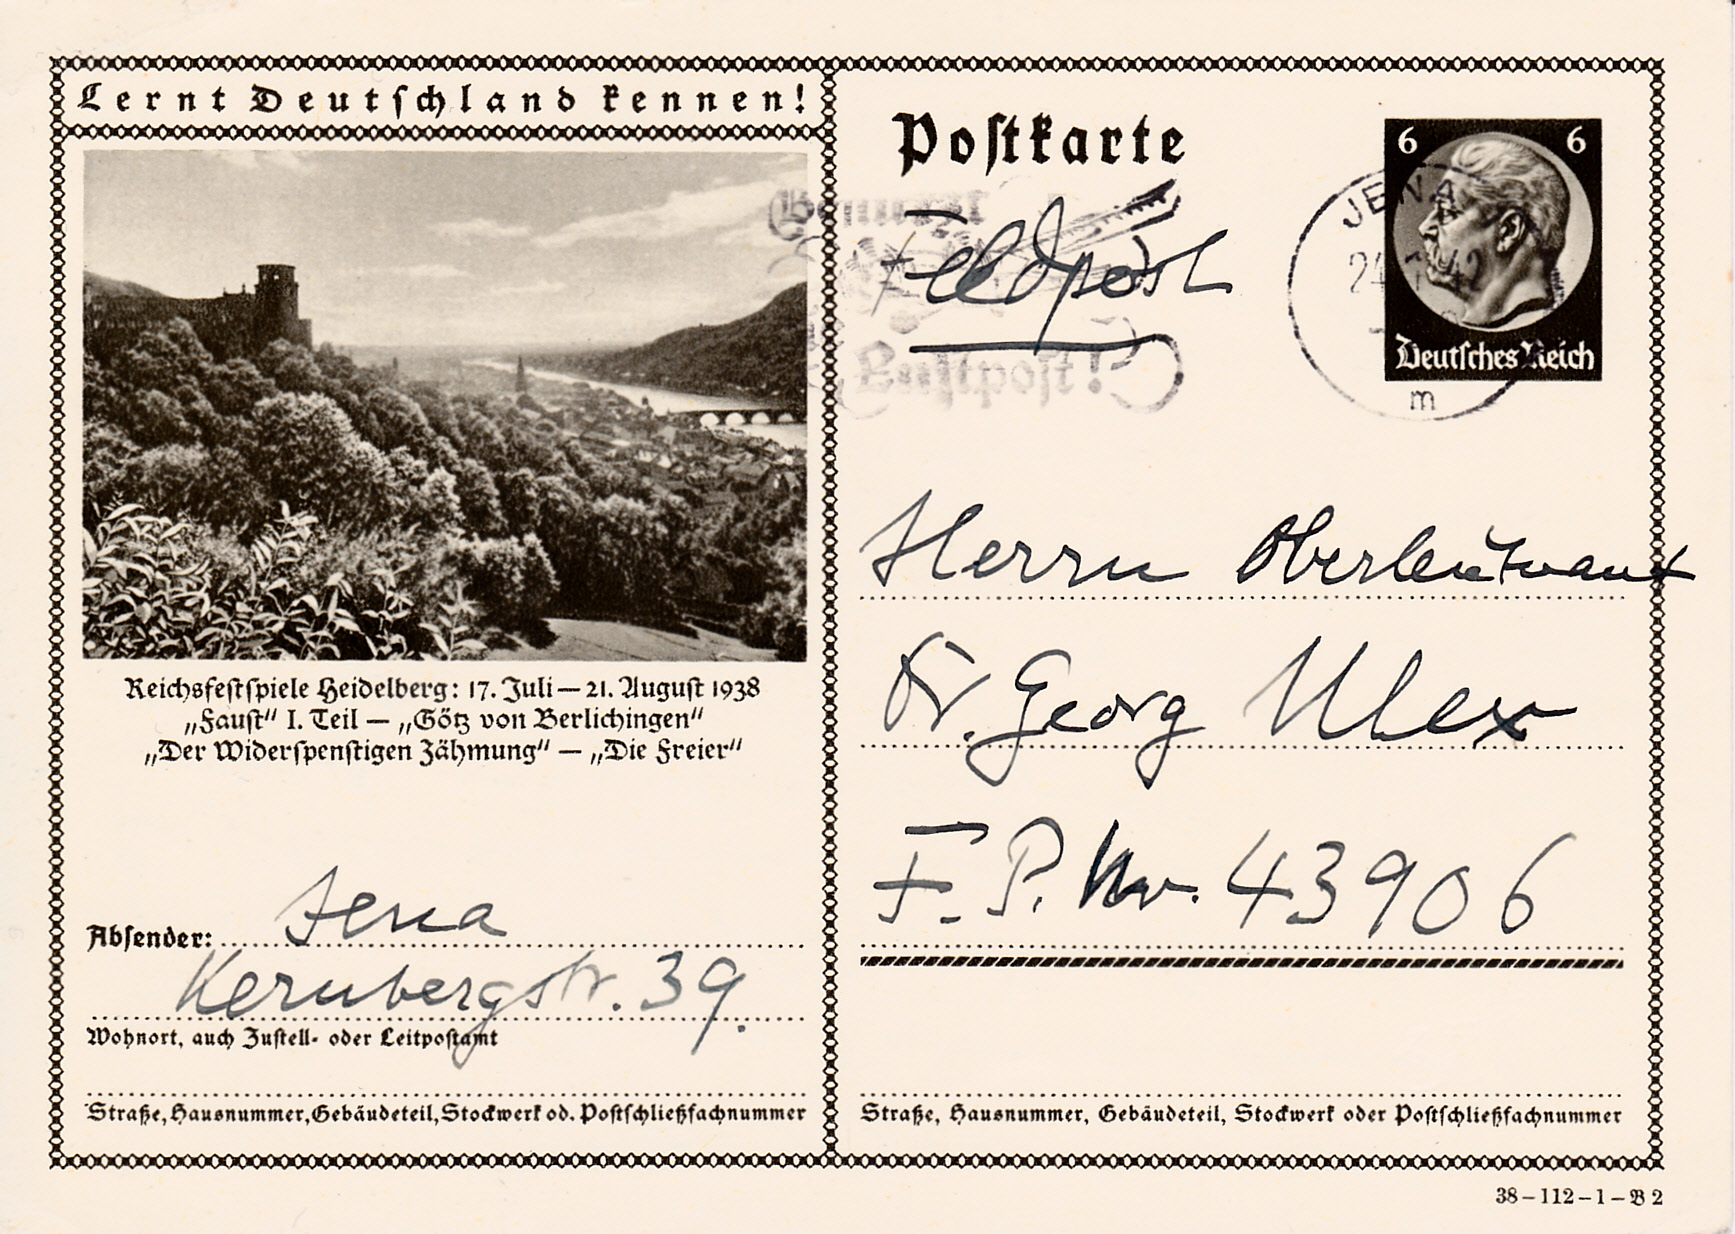 Lernt Deutschland kennen!
Reichsfestspiele Heidelberg: 17. Juli – 21. August 1938
„Faust“ I. Teil – „Götz von Berlichingen“
„Der Widerspenstigen Zähmung“ – „Die Freier“
Absender: Jena
Kernbergstr. 39.
Wohnort, auch Zustell- oder Leitpostamt
Straße, Hausnummer, Gebäudeteil, Stockwerk od. Postschließfachnummer
Postkarte
6 6
Deutsches Reich
JENA
42
m
Benutzt
Luftpost!
Feldpost
Herrn Oberleutnant
Dr. Georg Ulex
F. P. Nr. 43906
Straße, Hausnummer, Gebäudeteil, Stockwerk oder Postschließfachnummer
38–112–1–B 2